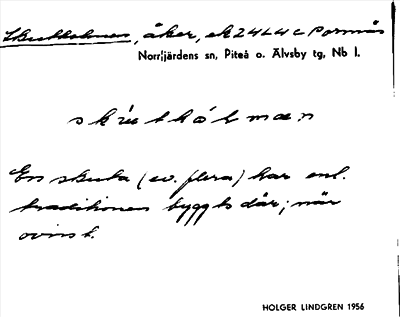 Skutholmen, åker, ek 24L4c Porsnäs
Norrfjärdens sn, Piteå o. Älvsby tg, Nb l.
skúthólmæn
En skuta (ev. flera) har enl.
traditionen byggts där; när
ovisst.
HOLGER LINDGREN 1956